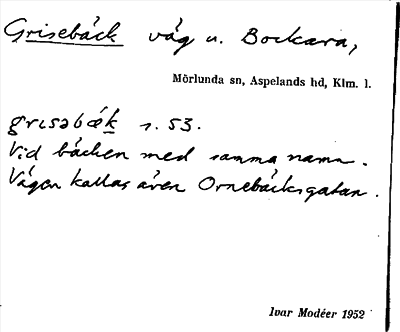 Grisebäck väg u. Bockara,
Mörlunda sn, Aspelands hd, Klm. l.
grisəbæk s. 53.
Vid bäcken med samma namn.
Vägen kallas även Ornebäcksgatan.
Ivar Modéer 1952